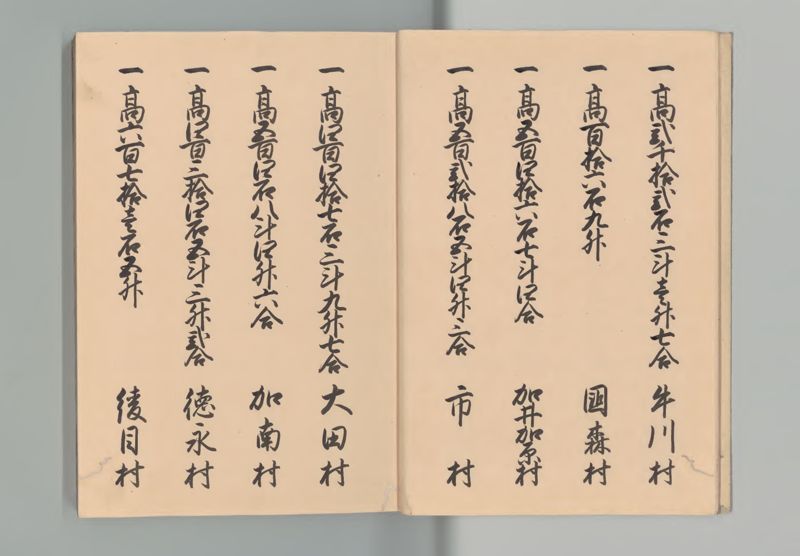 一高弐千拾弐石三斗壱升七合 牛川村
一高百拾六石九升 国森村
一高五百四拾六石七斗四合 加井加原村
一高五百弐拾八石五斗四升三合 市村
一高四百四拾七石三斗九升七合 大田村
一高五百四石八斗四升六合 加南村
一高四百三拾四石五斗三升弐合 徳永村
一高六百七拾壱石五升 綾目村